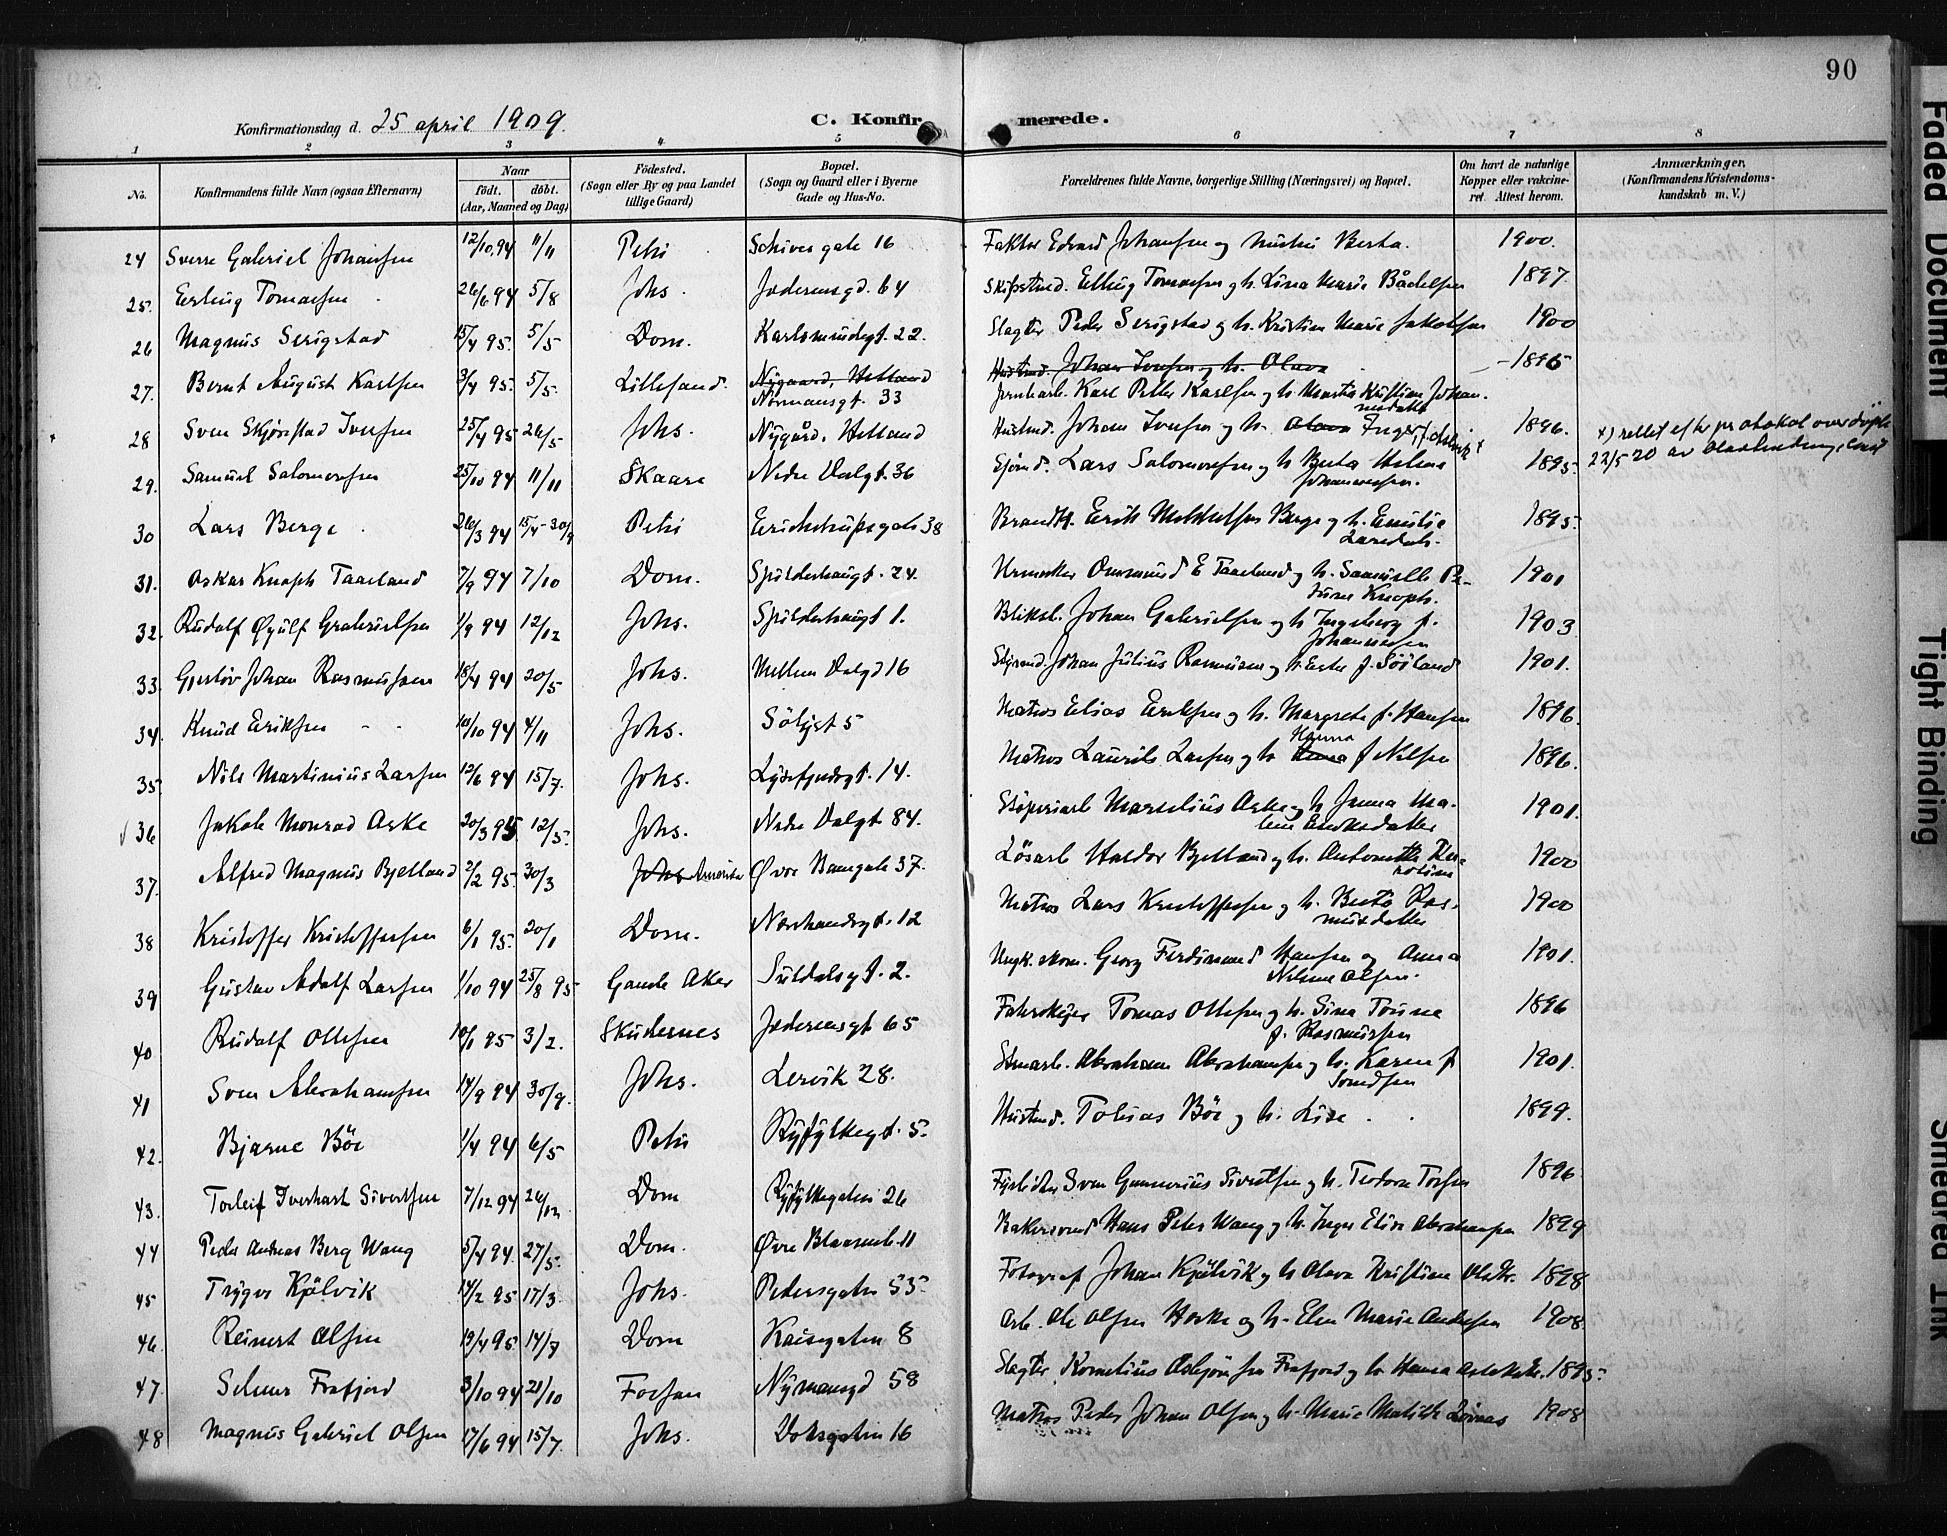 90
Konfirmationsdag d. 25 april 1909.
C. Konfirmerede.
1 2 3 4 5 6 7 8
No. Konfirmandens fulde Navn (ogsaa Efternavn) Naar født. døbt. (Aar, Maaned og Dag) Födested. (Sogn eller By og paa Landet tillige Gaard) Bopæl. (Sogn og Gaard eller i Byerne Gade og Hus-No. Forældrenes fulde Navne, borgerlige Stilling (Næringsvei) og Bopæl. Om havt de naturlige Kopper eller vakcineret. Attest herom. Anmærkninger, (Konfirmandens Kristendomskundskab m. V.)
24 Sverre Gabriel Johansen 12/10 94 11/11 Petri Schives gate 16 Faktor Edvard Johansen og hustru Berta. 1900.
25. Erling Tomasen 26/6 94 5/8 Johs. Jæderensgd. 64 Elling Tomasen og h. Lina Marie Bådelsen 1897.
26 Magnus Serigstad 15/4 95. 5/5 Dom. Karlsmindegt. 22. Slagter Peder Serigstad og h. Kristine Marie Jakobsen 1900
27. Bernt August Karlsen 3/4 95. 5/5. Lillesand. Nygaard, Hetland Normansgt. 33 Hustmd. Johan Ivesen og h. Olava 1896
Jernharb. Karl Peter Karlsen og h. Marta Kristine Johannesdatter
28 Sven Skjørestad Ivesen 25/4 95 26/5 Johs. Nygård, Hetland Hustmd. Johan Ivesen og h. Olava Inger 1896. x) rettet efter protokol over døpte
29. Samuel Salomonsen 25/10 94 11/11 Skaare Nedre Dalgt. 36 Sjømd. Lars Salomonsen og h. Berta Helene Johannessen. 1895. 22/5 20 av
30 Lars Berge 26/3 94 15/4 - 30/9 Petri Erichstrupsgate 38 Brandkt. Erik Mikkelsen Berge og h. Emilie 1895.
31. Oskar Knoph Taarland 7/9 94 7/10 Dom. Spilderhaugt. 24. Urmaker Ommund E Taarland og h. Samuelle Knoph. 1901
32. Rudolf Øyulf Gabrielsen 1/9 94 12/12 Johs. Spilderhaugt 1. Bliksl. Johan Gabrielsen og h Ingeborg f. Johannesen 1903
33. Gustav Johan Rasmussen 18/4 94 20/5 Johs. Mellem Dalgd 16 Styrmd. Johan Julius Rasmussen og h. f. Söiland 1901.
34. Knud Eriksen 10/10 94 4/11 Johs. Sölygt 5 Matros Elias Eriksen og h. Margrete f. Hansen 1896.
35 Nils Martinius Larsen 12/6 94 15/7. Johs. Lysefjordgt. 14. Matros Laurits Larsen og h Anna Hanna f Nilsen 1896.
36 Jakob Monrad Aske 20/3 95 12/5. Johs. Nedre Dalgt 84. Støperiarb Marselius Aske og h Malene Eriksdatter 1901.
37. Alfred Magnus Bjelland 2/2 95. 30/3 Johs Amerika Øvre Banegate 37. Løsarb Haldor Bjelland og h. Antonette 1900
38 Kristoffer Kristoffersen 6/1 95. 20/1 Dom. Nordlandsgt. 12 Matros Lars Kristoffersen og h. Berta Rasmusdatter 1900
39 Gustav Adolf Larsen 1/10 94 25/8 95 Gamle Aker Suldalsgt. 2. Georg Ferdinand Hansen og Anna Nilsine Olsen. 1901.
40 Rudolf Ottesen 10/1 95 3/2. Skudesnes Jæderensgt 65 Tomas Ottesen og h. Sina Tomine f. Rasmussen 1896
41 Sven Abrahamsen 14/9 94 30/9. Johs. Lervik 28. Stenarb. Abraham Abrahamsen og h. Karen f Svendsen 1901.
42. Bjarne Böe 1/4 94 6/5 Petri Ryfylkegt. 5. Hustmd. Tobias Böe og h. Lise 1899.
43. Torleif Everhart Sivertsen 7/12 94 26/12 Dom Ryfylkegaten 26 Fyrbøter Sven Gunnerius Sivertsen og h. Teodora Torsen 1896
44 Peder Andreas Berg Wang 5/4 94. 27/5. Dom. Øvre Blaasenb. 11 Bakersvend Hans Peter Wang og h. Inger Elise Abrahamsen 1899
45 Trygve Kjölvik 14/2 95 17/3. Johs. Pedersgaten 53. Fotograf Johan Kjölvik og h Olava Kristine Olsdtr. 1898
46. Reinert Olsen 19/4 95. 14/7 Dom Kaisegaten 8 Arb. Ole Olsen og h. Elen Marie Andersen 1908
47. Selmer Frafjord 3/10 94 21/10 Forsan Nymansgd 58 Slagter Kornelius Asbjørnsen Frafjord og h Hanna 1895.
48 Magnus Gabriel Olsen 17/6 94 15/7. Johs. Voksgaten 16 Matros Peder Johan Olsen og h. Marie Matilde 1908
Faded Document
Tight Binding
Smeared Ink